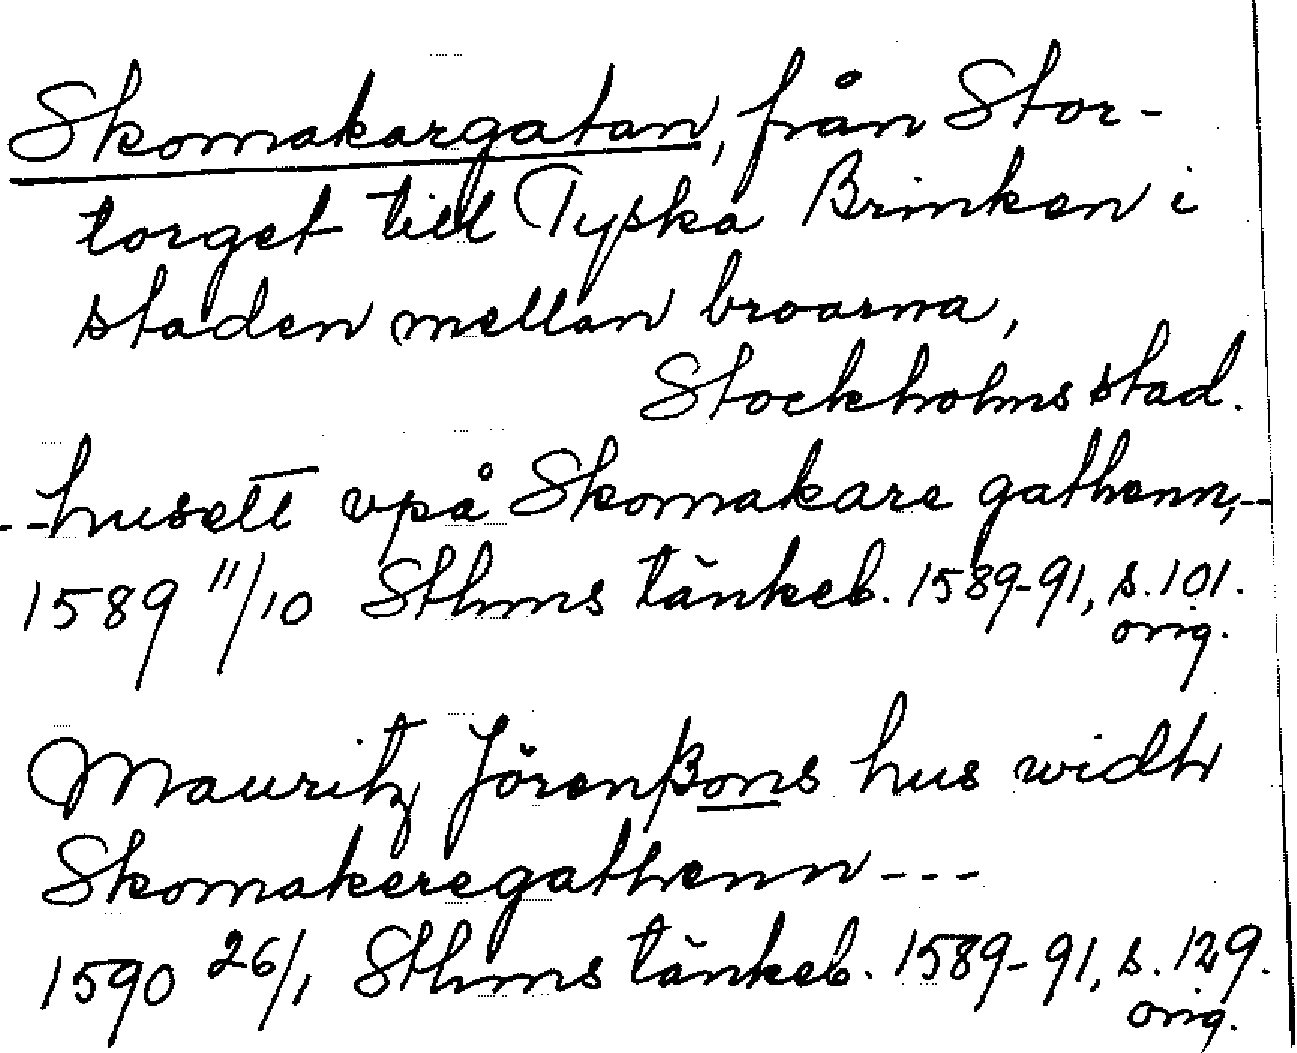 Skomakargatan, från Stor-
torget till Tyska Brinken i
staden mellan broarna,
Stockholms stad.
--husett vpå Skomakare gathenn,--
1589 11/10 Sthms tänkeb. 1589-91, s. 101.
orig.
Mauritz Jörenßons hus widh
Skomakeregathenn---
1590 26/1 Sthms tänkeb. 1589-91, s. 129.
orig.